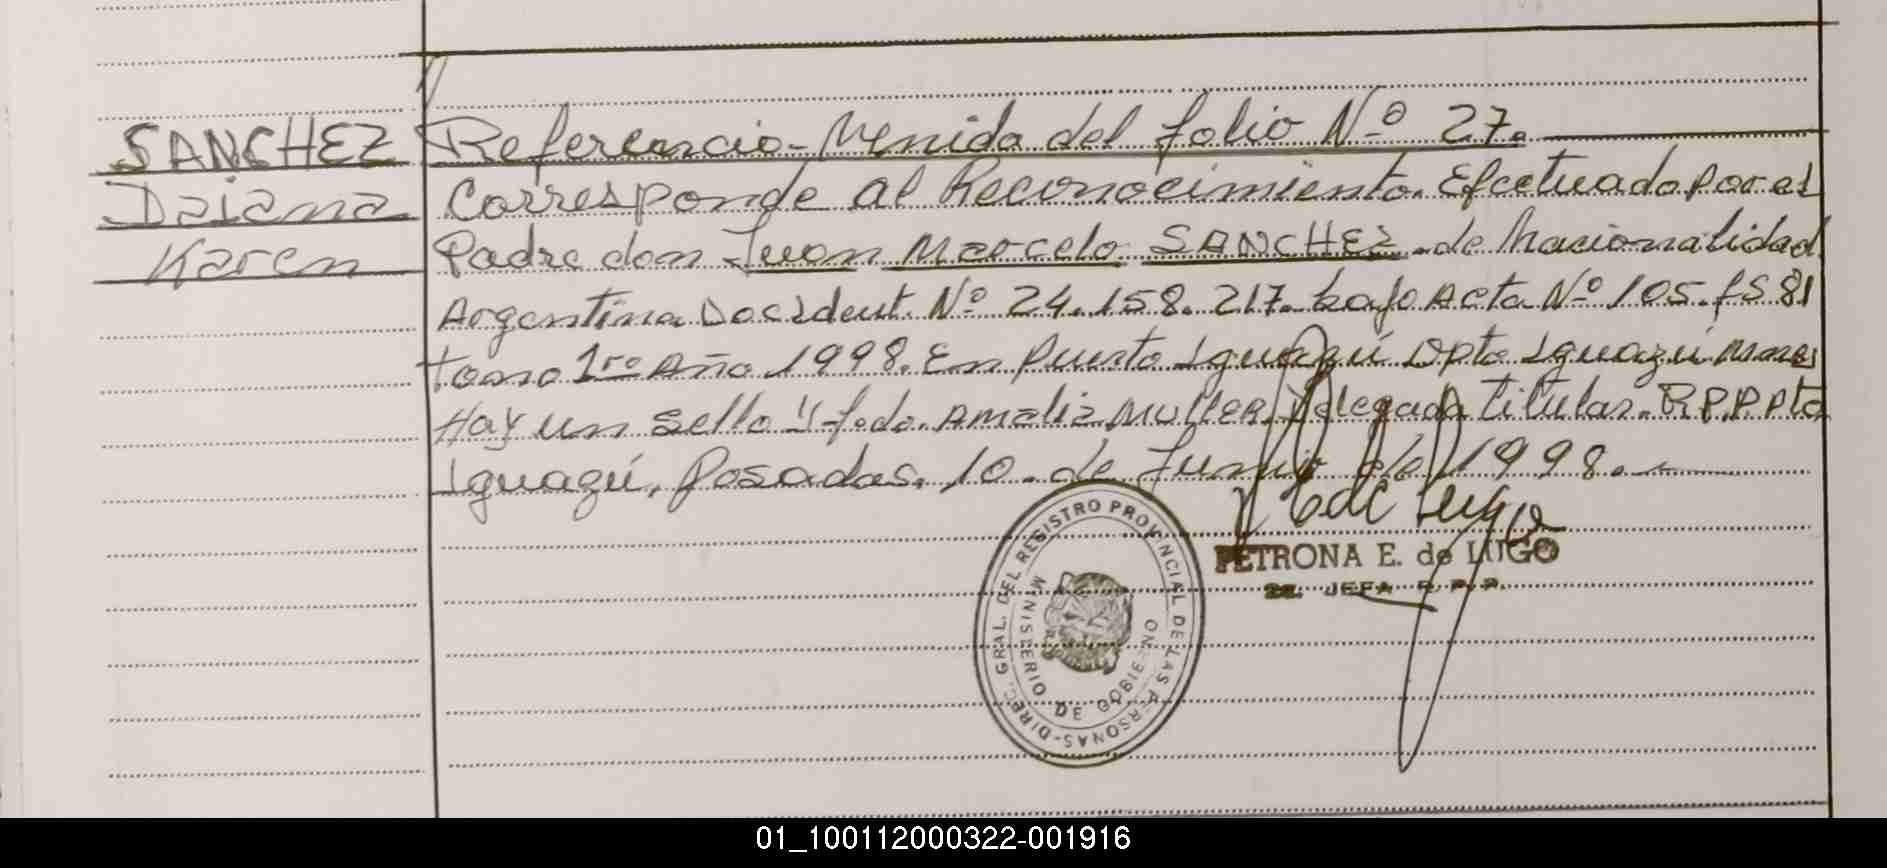 SANCHEZ
Daiana
Karen
Referencia - Venida del folio Nº 27.
Corresponde al Reconocimiento. Efectuado por el
Padre don Juan Marcelo SANCHEZ - de Nacionalidad
Argentina Doc Ident. Nº 24.158.217. bajo Acta Nº 105. fs 81
tomo 1ro Año 1998. En Puerto Iguazú Dpto Iguazú Mnes
Hay un sello y fdo. Amalia MULLER. Delegada titular. R.P.P. Pto
Iguazú, Posadas, 10 de Junio de 1998.
PETRONA E. de LUGO
2a. JEFA R.P.P.
DIREC. GRAL. DEL REGISTRO PROVINCIAL DE LAS PERSONAS -
MINISTERIO DE GOBIERNO
01_100112000322-001916